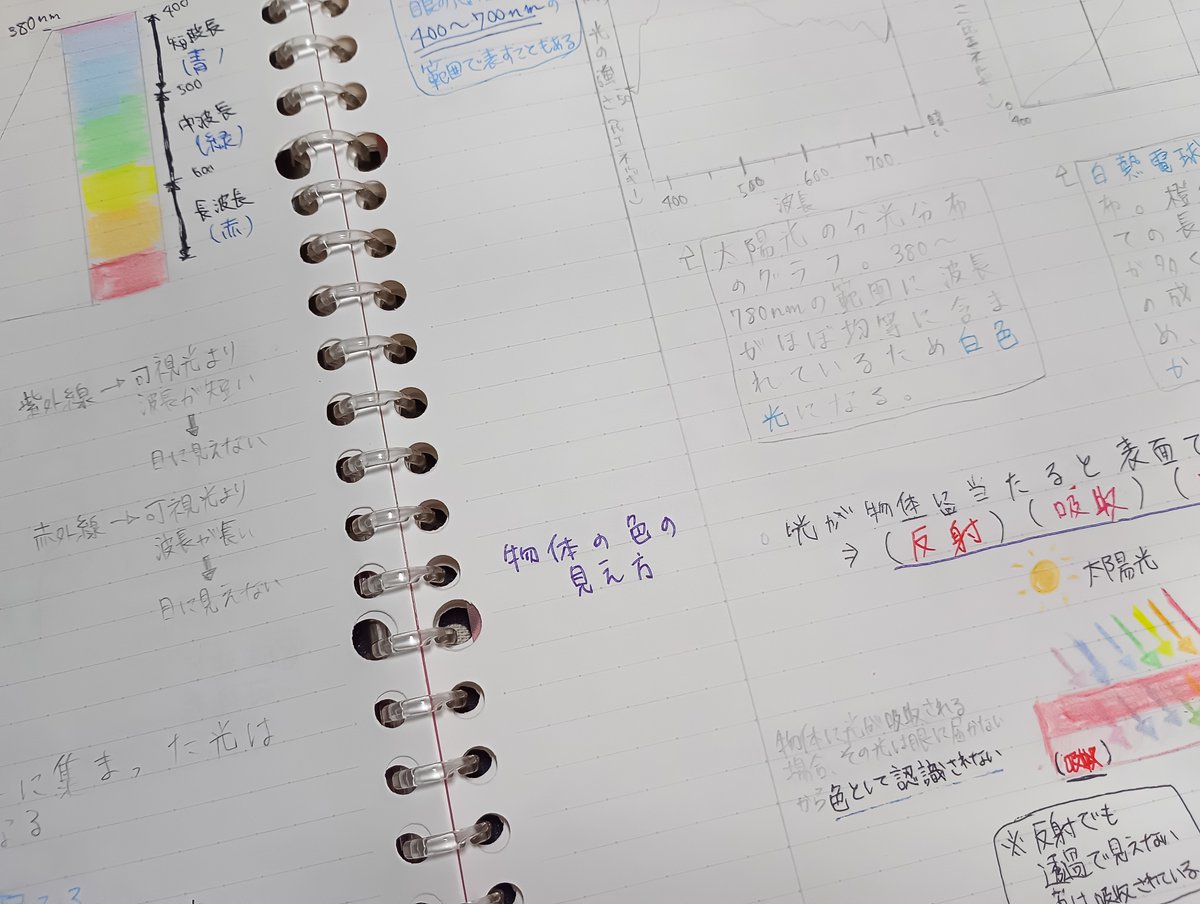 380nm
400
短波長
(青)
500
中波長
(緑)
600
長波長
(赤)
紫外線→可視光より
波長が短い
目に見えない
赤外線→可視光より
波長が長い
目に見えない
に集まった光は
400〜700nmの
範囲で表すこともある
光の強さ(エネルギー)
50
400
500
600
700
波長
太陽光の分光分布
のグラフ。380〜
780nmの範囲に波長
がほぼ均等に含ま
れているため白色
光になる。
0
400
白熱電球
布。橙
ての長
が多く
の成
め、
か
物体の色の
見え方
光が物体に当たると表面で
⇒(反射)(吸収)(
太陽光
物体に光が吸収される
場合、その光は眼に届かない
から色として認識されない
(吸収)
※反射でも
透過で見えない
色は吸収されている